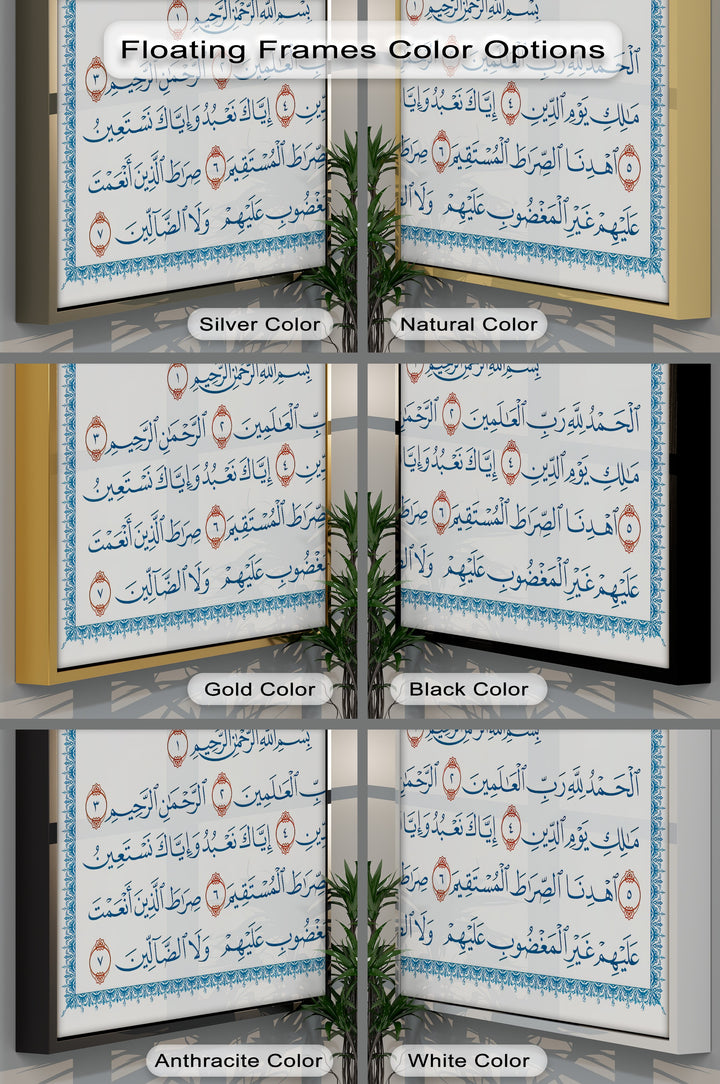 Floating Frames Color Options
بِسْمِ ٱللَّهِ ٱلرَّحْمَٰنِ ٱلرَّحِيمِ ١
ٱلْعَٰلَمِينَ ٢ ٱلرَّحْمَٰنِ ٱلرَّحِيمِ ٣
ٱلدِّينِ ٤ إِيَّاكَ نَعْبُدُ وَإِيَّاكَ نَسْتَعِينُ
ٱلصِّرَٰطَ ٱلْمُسْتَقِيمَ ٦ صِرَٰطَ ٱلَّذِينَ أَنْعَمْتَ
عَلَيْهِمْ وَلَا ٱلضَّآلِّينَ ٧
Silver Color
بِسْمِ ٱللَّهِ ٱلرَّحْمَٰنِ ٱلرَّحِيمِ ١
ٱلْحَمْدُ لِلَّهِ رَبِّ ٱلْعَٰلَمِينَ ٢
مَٰلِكِ يَوْمِ ٱلدِّينِ ٤ إِيَّاكَ نَعْبُدُ وَإِيَّا
٥ ٱهْدِنَا ٱلصِّرَٰطَ ٱلْمُسْتَقِيمَ ٦ صِرَٰطَ
عَلَيْهِمْ غَيْرِ ٱلْمَغْضُوبِ عَلَيْهِمْ وَلَا
Natural Color
بِسْمِ ٱللَّهِ ٱلرَّحْمَٰنِ ٱلرَّحِيمِ ١
رَبِّ ٱلْعَٰلَمِينَ ٢ ٱلرَّحْمَٰنِ ٱلرَّحِيمِ ٣
ٱلدِّينِ ٤ إِيَّاكَ نَعْبُدُ وَإِيَّاكَ نَسْتَعِينُ
ٱلصِّرَٰطَ ٱلْمُسْتَقِيمَ ٦ صِرَٰطَ ٱلَّذِينَ أَنْعَمْتَ
عَلَيْهِمْ وَلَا ٱلضَّآلِّينَ ٧
Gold Color
بِسْمِ ٱللَّهِ ٱلرَّحْمَٰنِ ٱلرَّحِيمِ ١
ٱلْحَمْدُ لِلَّهِ رَبِّ ٱلْعَٰلَمِينَ ٢ ٱلرَّحْمَٰنِ
مَٰلِكِ يَوْمِ ٱلدِّينِ ٤ إِيَّاكَ نَعْبُدُ وَإِيَّا
٥ ٱهْدِنَا ٱلصِّرَٰطَ ٱلْمُسْتَقِيمَ ٦ صِرَٰطَ
عَلَيْهِمْ غَيْرِ ٱلْمَغْضُوبِ عَلَيْهِمْ وَلَا
Black Color
بِسْمِ ٱللَّهِ ٱلرَّحْمَٰنِ ٱلرَّحِيمِ ١
رَبِّ ٱلْعَٰلَمِينَ ٢ ٱلرَّحْمَٰنِ ٱلرَّحِيمِ ٣
ٱلدِّينِ ٤ إِيَّاكَ نَعْبُدُ وَإِيَّاكَ نَسْتَعِينُ
ٱلصِّرَٰطَ ٱلْمُسْتَقِيمَ ٦ صِرَٰطَ ٱلَّذِينَ أَنْعَمْتَ
عَلَيْهِمْ وَلَا ٱلضَّآلِّينَ ٧
Anthracite Color
بِسْمِ ٱللَّهِ ٱلرَّحْمَٰنِ ٱلرَّحِيمِ ١
ٱلْحَمْدُ لِلَّهِ رَبِّ ٱلْعَٰلَمِينَ ٢ ٱلرَّحْمَٰنِ
مَٰلِكِ يَوْمِ ٱلدِّينِ ٤ إِيَّاكَ نَعْبُدُ وَإِيَّا
٥ ٱهْدِنَا ٱلصِّرَٰطَ ٱلْمُسْتَقِيمَ ٦ صِرَٰطَ
عَلَيْهِمْ غَيْرِ ٱلْمَغْضُوبِ عَلَيْهِمْ وَلَا
White Color